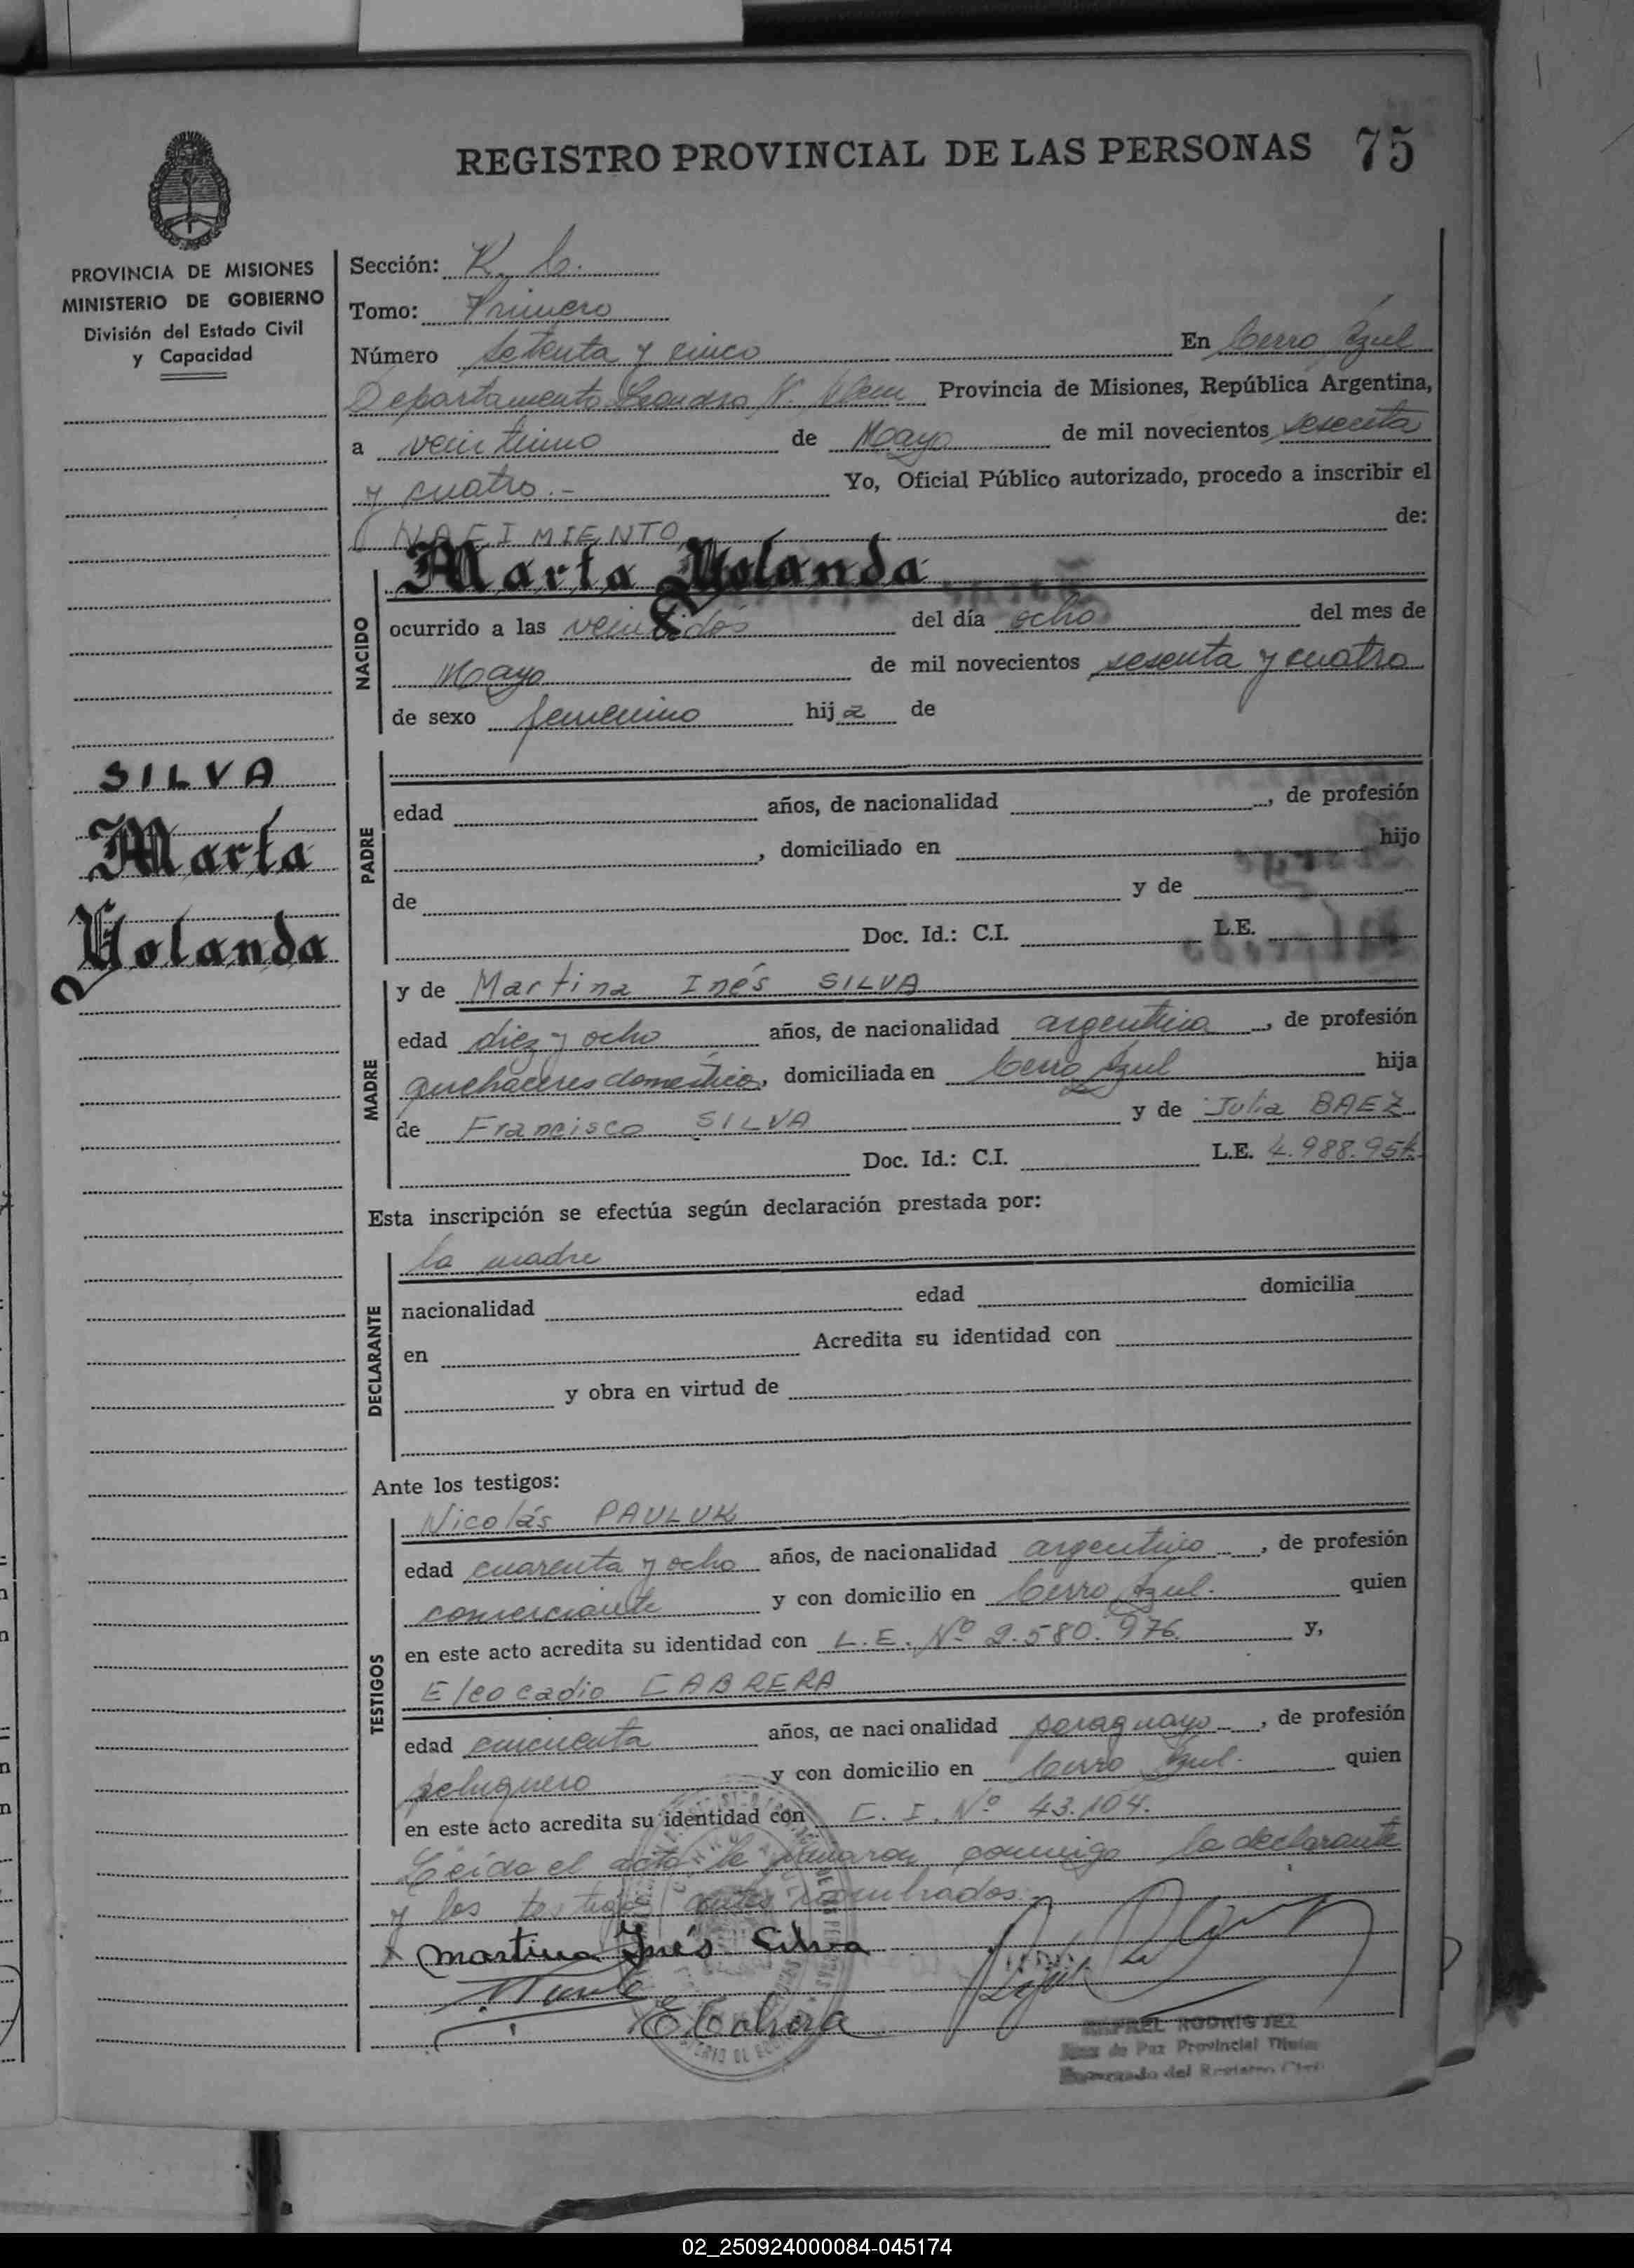 REGISTRO PROVINCIAL DE LAS PERSONAS 75
PROVINCIA DE MISIONES
MINISTERIO DE GOBIERNO
División del Estado Civil
y Capacidad
SILVA
Marta
Yolanda
Sección: K. C.
Tomo: Primero
Número setenta y cinco En Cerro Azul
Departamento Leandro N. Alem Provincia de Misiones, República Argentina,
a veintiuno de Mayo de mil novecientos sesenta
y cuatro.- Yo, Oficial Público autorizado, procedo a inscribir el
NACIMIENTO de:
NACIDO
Marta Yolanda
ocurrido a las veintidós del día ocho del mes de
Mayo de mil novecientos sesenta y cuatro
de sexo femenino hija de
PADRE
edad años, de nacionalidad , de profesión
, domiciliado en hijo
de y de
Doc. Id.: C.I. L.E.
MADRE
y de Martina Inés SILVA
edad diez y ocho años, de nacionalidad argentina , de profesión
quehaceres domésticos, domiciliada en Cerro Azul hija
de Francisco SILVA y de Julia BAEZ
Doc. Id.: C.I. L.E. 4.988.954
Esta inscripción se efectúa según declaración prestada por:
DECLARANTE
la madre
nacionalidad edad domicilia
en Acredita su identidad con
y obra en virtud de
Ante los testigos:
TESTIGOS
Nicolás PAULUK
edad cuarenta y ocho años, de nacionalidad argentino , de profesión
comerciante y con domicilio en Cerro Azul. quien
en este acto acredita su identidad con L.E. Nº 2.580.976 y,
Eleocadio CABRERA
edad cincuenta años, de nacionalidad paraguayo , de profesión
peluquero y con domicilio en Cerro Azul. quien
en este acto acredita su identidad con C. I. Nº 43.104.
Leída el acta la firmaron conmigo la declarante
y los testigos antes nombrados.
x Martina Inés Silva
E Cabrera
RAFAEL RODRIGUEZ
Juez de Paz Provincial Titular
Encargado del Registro Civil
02_250924000084-045174